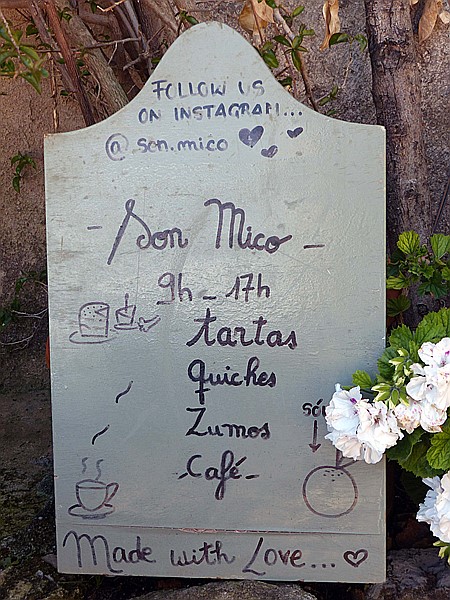 FOLLOW US
ON INSTAGRAM...
@son.mico
- Son Mico -
9h - 17h
tartas
Quiches
Zumos
- Café -
Made with Love...